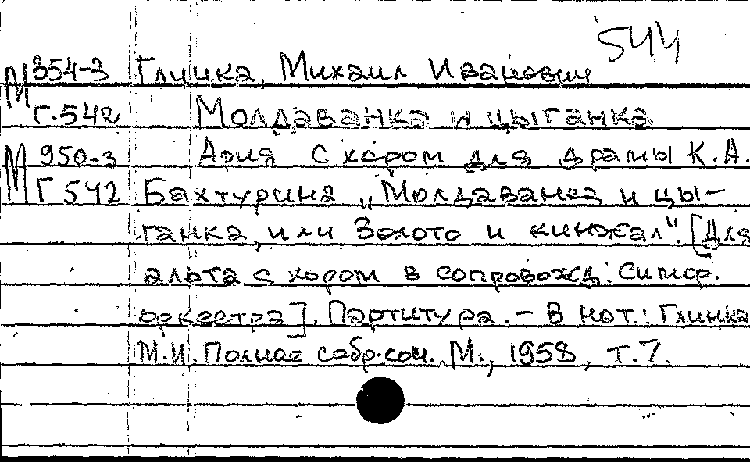 544
М 354-3 Глинка, Михаил Иванович
Г-542 Молдаванка и цыганка
М 950-3 Ария с хором для драмы К.А.
Г 542 Бахтурина „Молдаванка и цы-
ганка, или Золото и кинжал". [Для
альта с хором в сопровожд. симф.
оркестра]. Партитура. - В нот.: Глинка
М.И. Полное собр. соч. М., 1958, т.7.